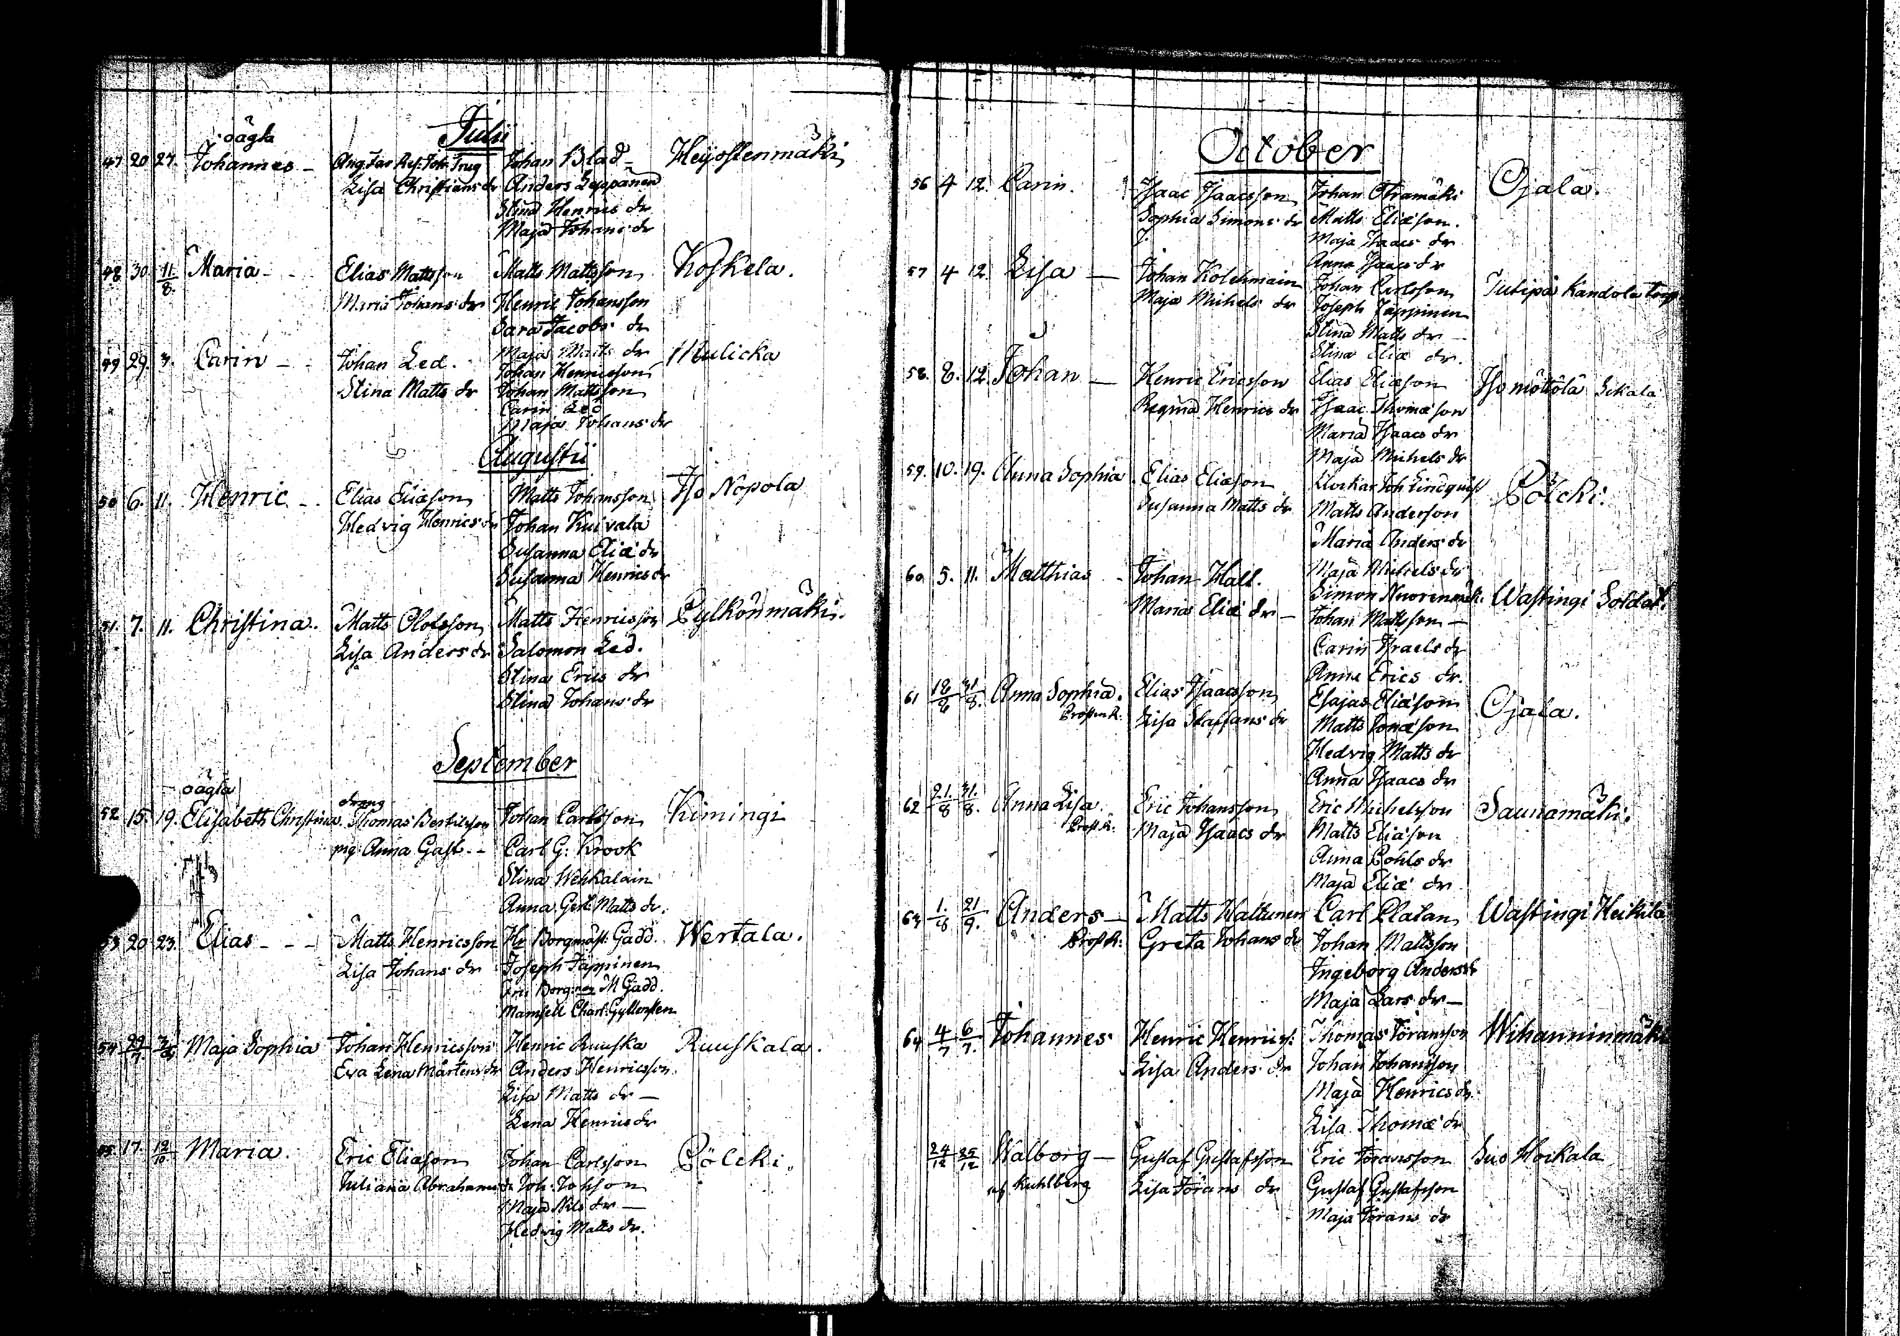 Julii
oägta
47 20 27. Johannes – Johan Blad – Heijostenmäki
Lisa Christians dr Anders Leppänen
Stina Henrics dr
Maja Johans dr
48 30. 11/8. Maria – Elias Mattsson Matts Mattsson Koskela.
Maria Johans dr Henric Johansson
Sara Jacobs dr
Maja Matts dr
49 29. 3. Carin – – Johan Led. Johan Henricsson Mulicka
Stina Matts dr Johan Mattsson
Carin Led
Maja Johans dr
Augusti
50 6. 11. Henric – – Elias Eliæson Matts Johansson Iso Nopola
Hedvig Henrics dr Johan Kuivala
Susanna Eliæ dr
Susanna Henrics dr
51. 7. 11. Christina. Matts Olofsson Matts Henricsson Pylkönmäki.
Lisa Anders dr Salomon Led.
Stina Erics dr
Stina Johans dr
September
oägta
52 15. 19. Elisabeth Christina. dräng Thomas Bertilsson Johan Carlsson Kimingi
pig: Anna Gast – – Carl G: Krook
Stina Wehkalain
Anna Gert. Matts dr.
53 20 23. Elias – – – Matts Henricsson Hr Borgmäst: Gadd Wertala.
Lisa Johans dr Joseph Jäppinen
M Gadd.
Mamsell Charl: Gyllonsten
54 29/7 Maja Sophia Johan Henricsson Henric Ruuska Ruuskala.
Eva Lena Mårtens dr Anders Henricsson
Lisa Matts dr –
Lena Henrics dr
55. 17. 12/10. Maria. Eric Eliæson Johan Carlsson Pölcki.
Juliana Abrahams dr Joh: Johsson
Maja Nils dr –
Hedvig Matts dr.
October
56 4 12. Carin. Isaac Isaacsson Johan Oframäki Ojala.
Sophia Simons dr Matts Eliæson.
Maja Isaacs dr
Anna Isaacs dr
57 4 12 Lisa – Johan Kolehmain Johan Carlsson Kandola torp
Maja Michels dr Joseph Jäppinen
Stina Matts dr –
Stina Eliæ dr.
58. 8. 12. Johan – Henric Ericsson Elias Eliæson Iso möttölä Sikala
Regina Henrics dr Isaac Thomæson
Maria Isaacs dr
Maja Michels dr
59. 10. 19. Anna Sophia Elias Eliæson Klockar Joh Lindqvist Pölcki.
Susanna Matts dr Matts Anderson
Maria Anders dr
Maja Michels dr
60 5. 11. Matthias – Johan Hall. Simon Nuorenmäk. Wastingi Soldat.
Maria Eliæ dr – Johan Mattsson –
Carin Israels dr
Anna Erics dr.
61 18/8 31/8. Anna Sophia. Elias Isaacsson Esajas Eliæson Ojala.
Lisa Staffans dr Matts Jonæson
Hedvig Matts dr
Anna Isaacs dr
62 21./8 31./8. Anna Lisa. Eric Johansson Eric Michelsson Saunamäki.
Maja Isaacs dr Matts Eliæson
Anna Pohls dr
Maja Eliæ dr.
63 1./8 21/9. Anders – Matts Hattunen Carl Platan Wastingi Heikilä
Greta Johans dr Johan Mattsson
Ingeborg Anders dr
Maja Lars dr –
64 4/7 6/7. Johannes Henric Henrics: Thomas Göransson Wihanninmäki
Lisa Anders dr Johan Johansson
Maja Henrics dr
Lisa Thomæ dr
24/12 25/12 Walborg – Gustaf Gustafsson Eric Göransson Suo Hoikala
af Kuhlberg Lisa Görans dr Gustaf Gustafsson
Maja Görans dr